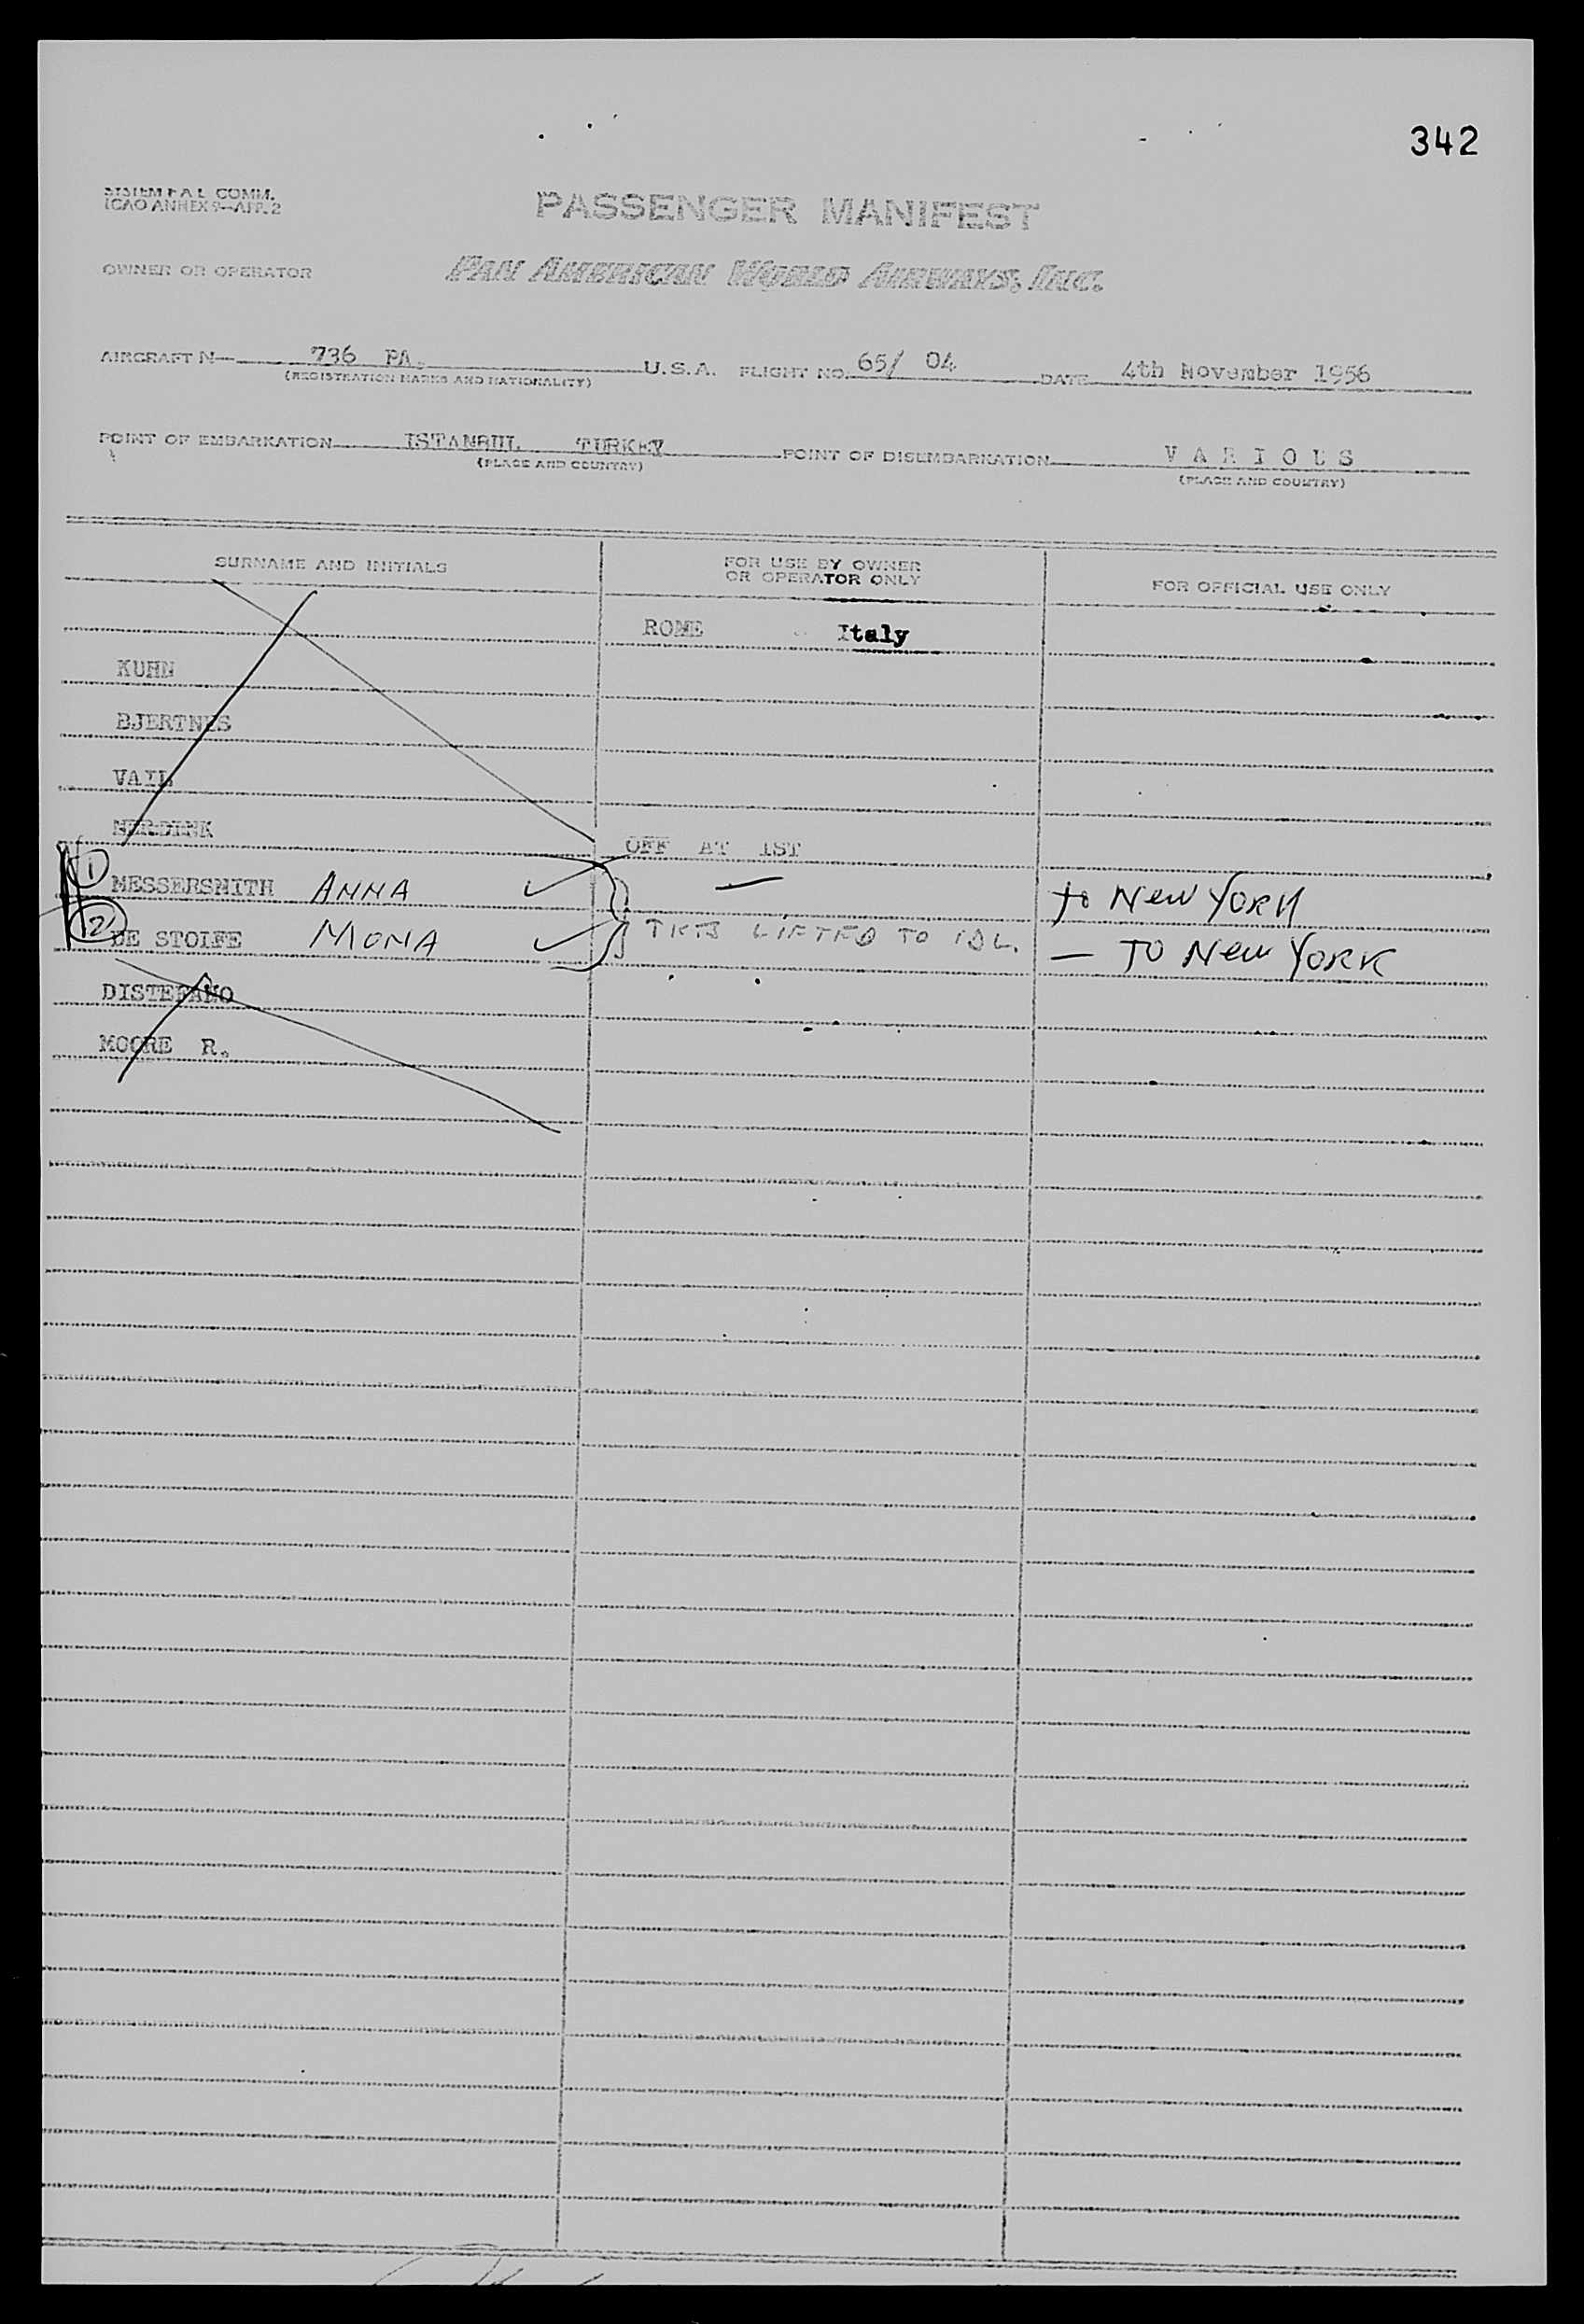 342
SYSTEM F A L COMM.
ICAO ANNEX 9—APP. 2
PASSENGER MANIFEST
OWNER OR OPERATOR PAN AMERICAN WORLD AIRWAYS, INC.
AIRCRAFT N— 736 PA. U.S.A. FLIGHT NO. 65/ 04 DATE 4th November 1956
(REGISTRATION MARKS AND NATIONALITY)
POINT OF EMBARKATION ISTANBUL TURKEY POINT OF DISEMBARKATION V A R I O U S
(PLACE AND COUNTRY) (PLACE AND COUNTRY)
SURNAME AND INITIALS FOR USE BY OWNER OR OPERATOR ONLY FOR OFFICIAL USE ONLY
ROME Italy
KUHN
BJERTNES
VAIL
OFF AT IST
1 MESSERSMITH ANNA ✓ — to New York
2 DE STOLFE MONA ✓ TKTS LIFTED TO IDL. — TO New YORK
DISTEFANO
MOORE R.